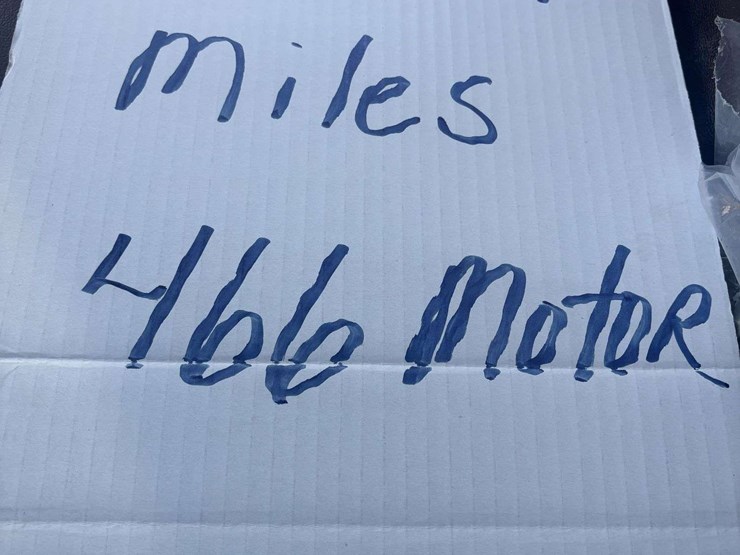 miles
466 MotoR